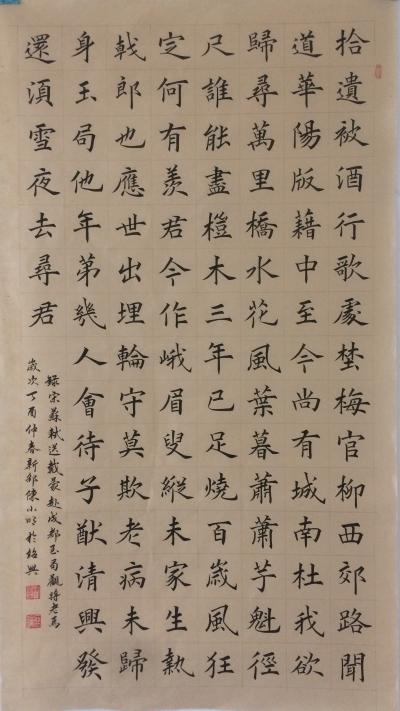 拾遺被酒行歌處埜梅官柳西郊路聞
道華陽版藉中至今尚有城南杜我欲
歸尋萬里橋水花風葉暮蕭蕭芋魁徑
尺誰能盡榿木三年已足燒百歲風狂
定何有羨君今作峨眉叟縱未家生執
戟郎也應世出埋輪守莫欺老病未歸
身玉局他年第幾人會待子猷清興發
還湏雪夜去尋君
錄宋蘇軾送戴蒙赴成都玉局觀將老焉
歲次丁酉仲春新邵陳小明於紹興